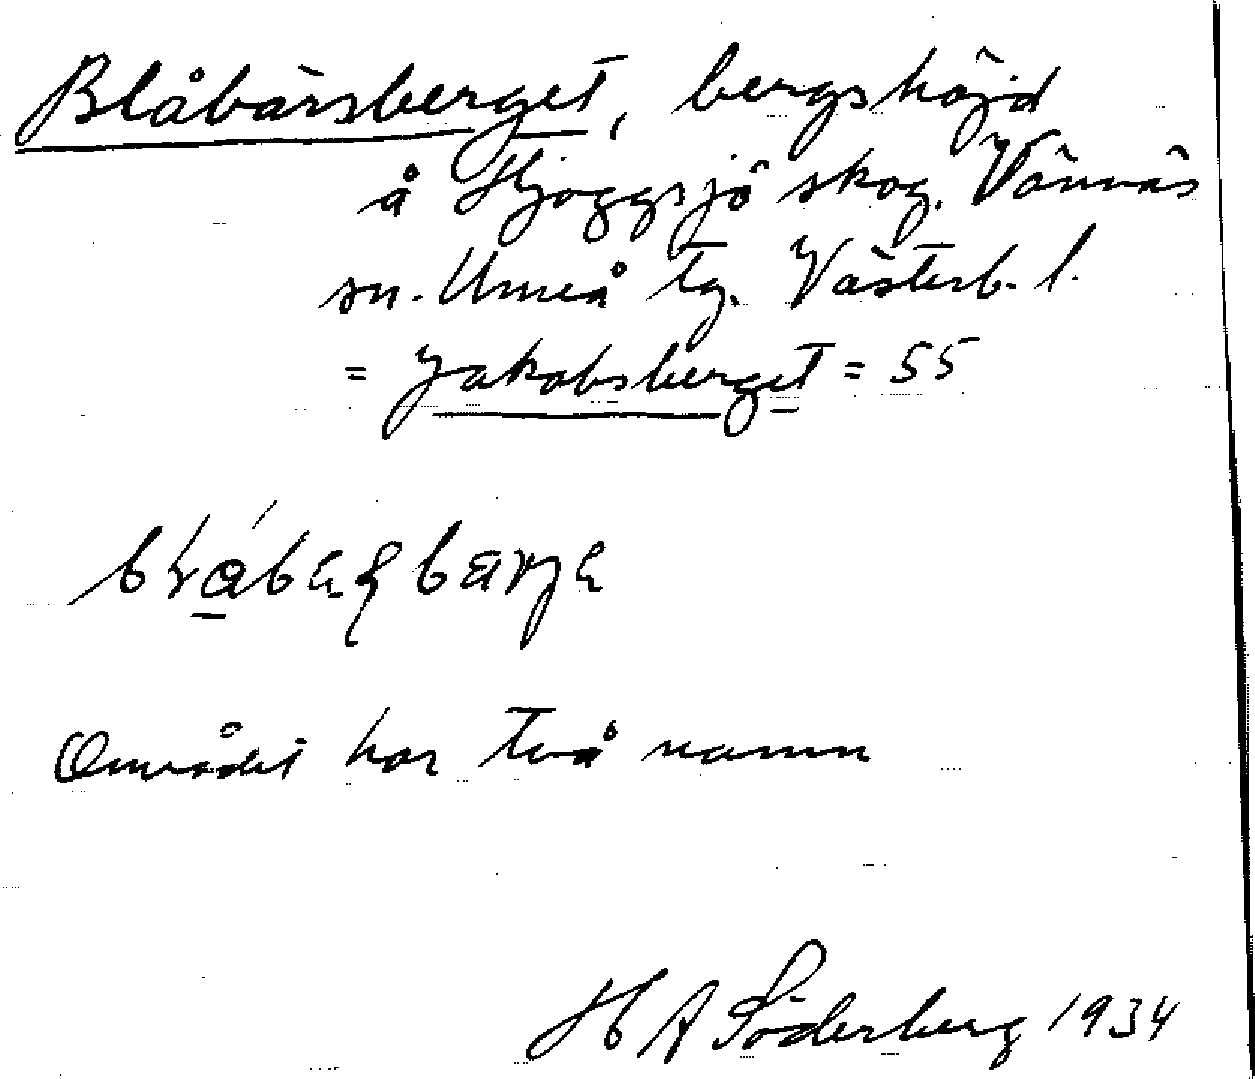 Blåbärsberget, bergshöjd
å Hjoggsjö skog. Vännäs
sn. Umeå tg. Västerb. l.
= Jakobsberget = 55
Området har två namn
H A Söderberg 1934